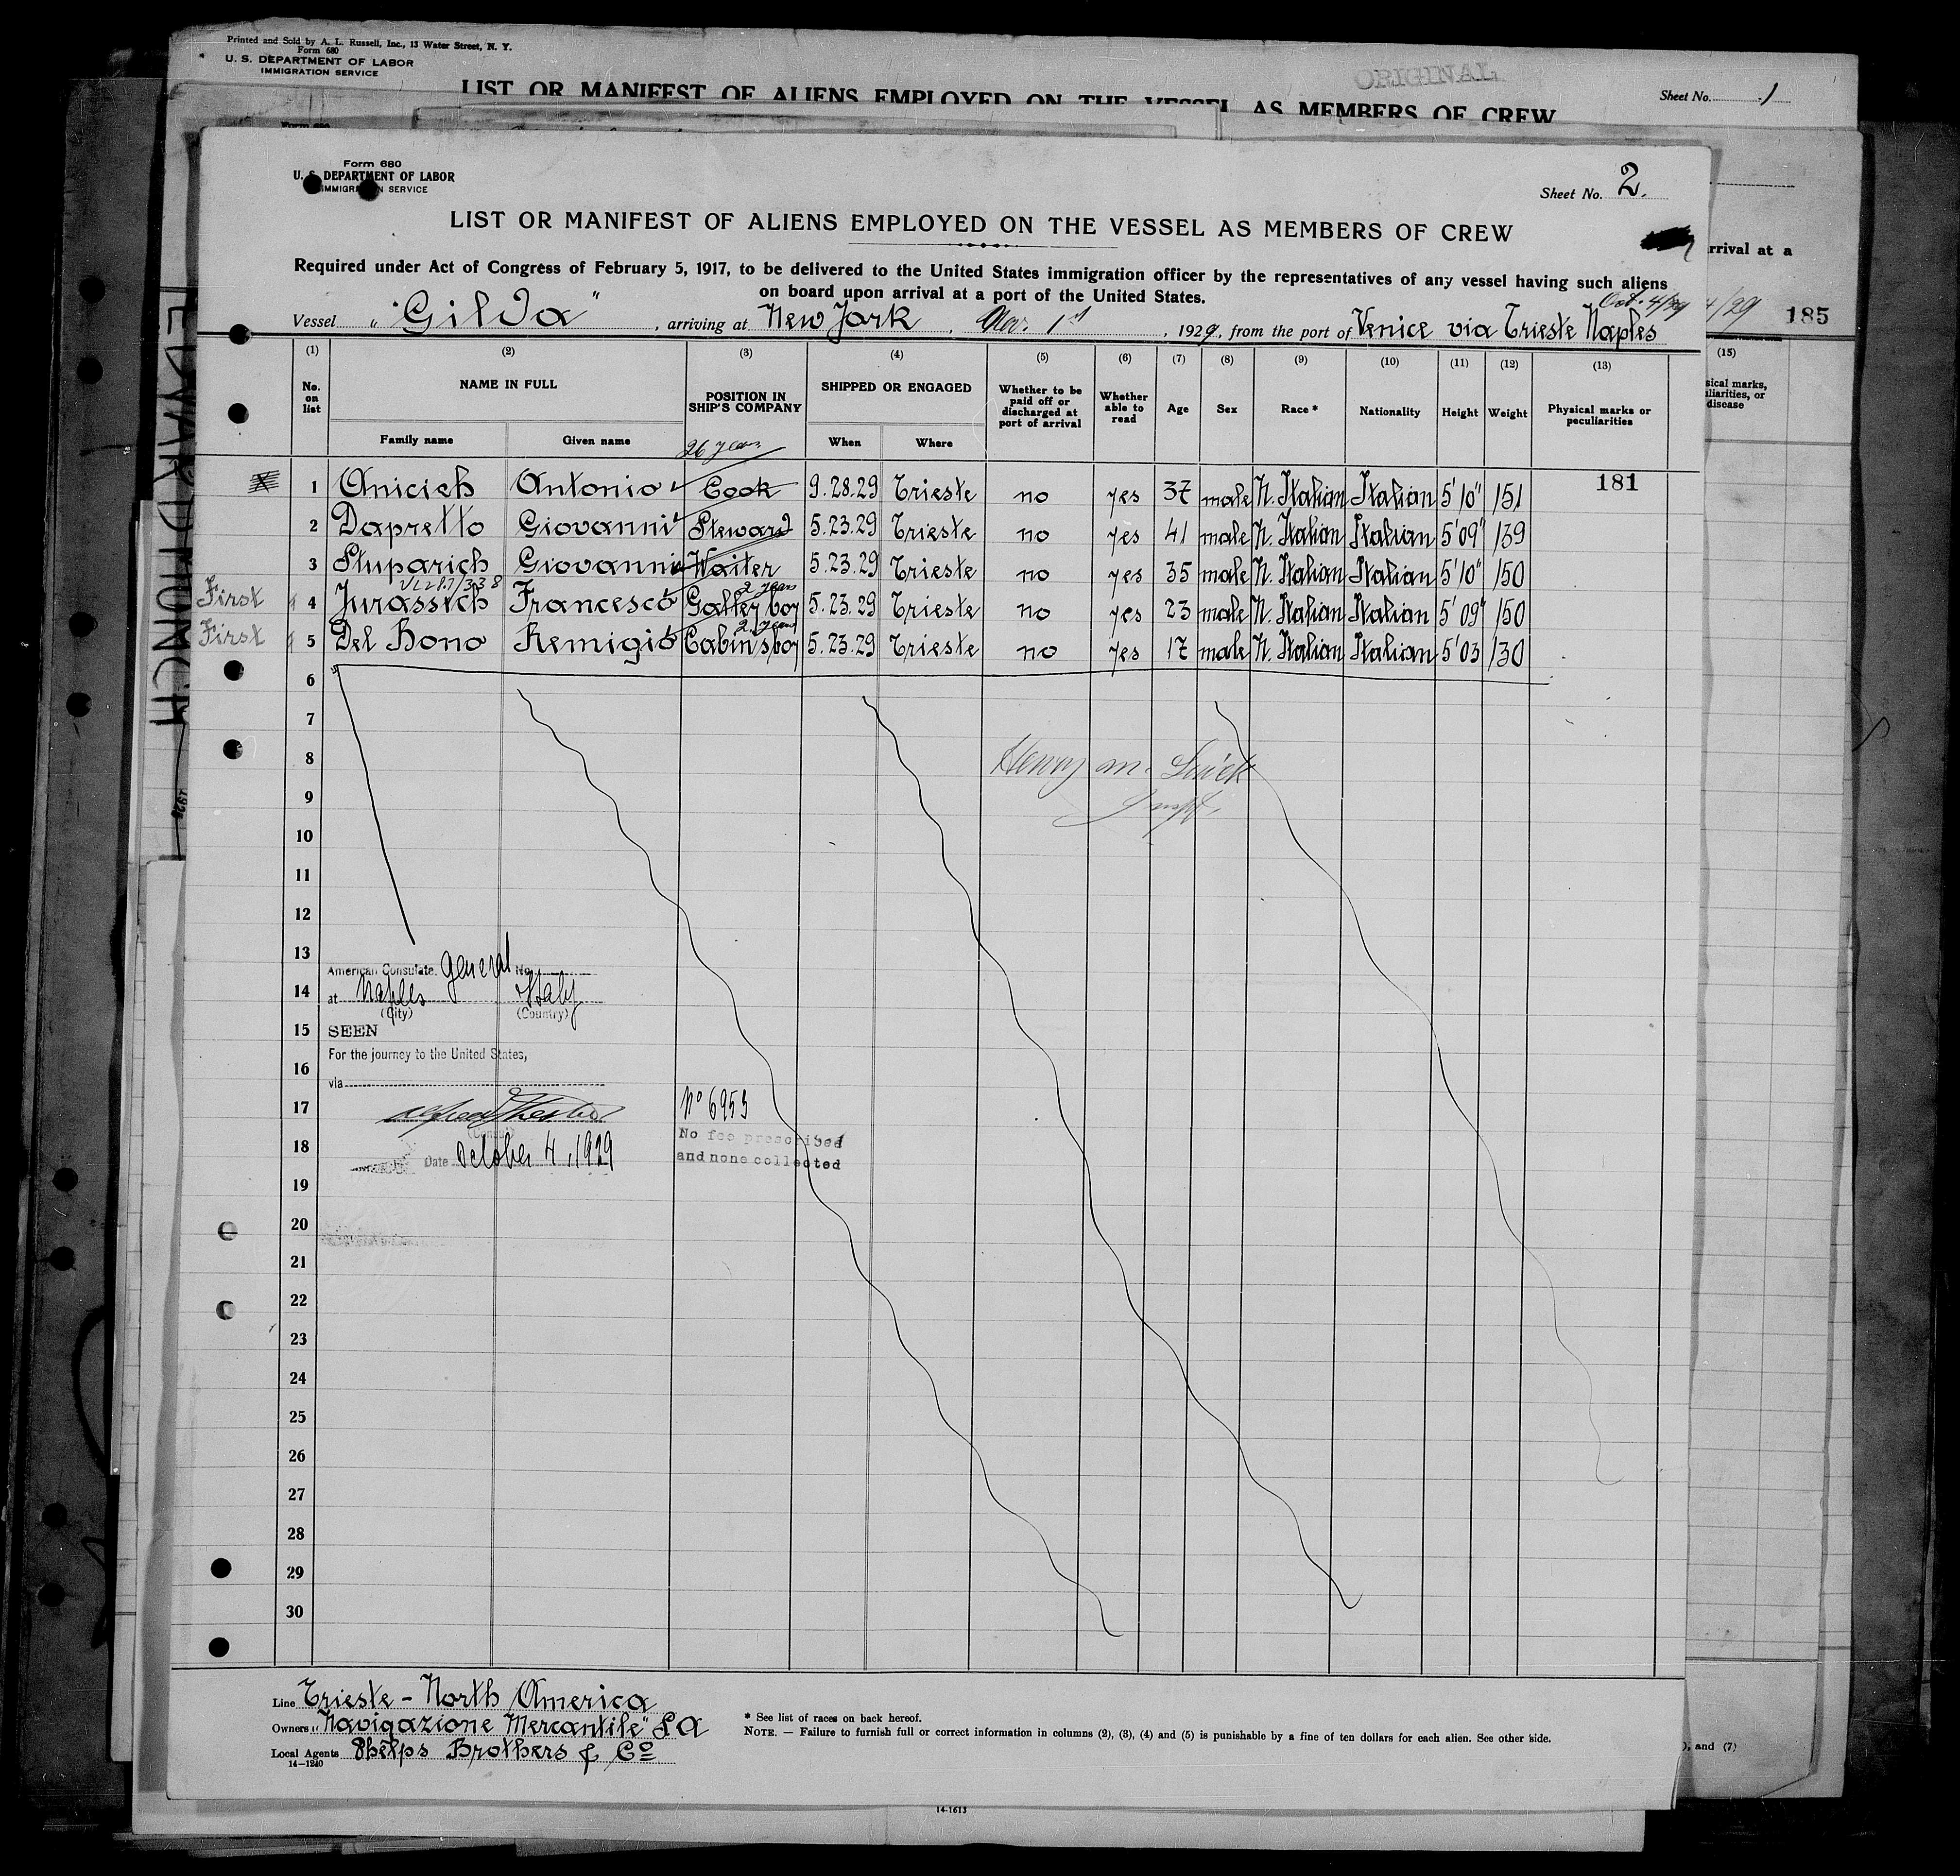 Printed and Sold by A. L. Russell, Inc., 13 Water Street, N. Y.
Form 680
U. S. DEPARTMENT OF LABOR
IMMIGRATION SERVICE
ORIGINAL
Sheet No. 1
LIST OR MANIFEST OF ALIENS EMPLOYED ON THE VESSEL AS MEMBERS OF CREW
Form 680
U. S. DEPARTMENT OF LABOR
IMMIGRATION SERVICE
Sheet No. 2.
LIST OR MANIFEST OF ALIENS EMPLOYED ON THE VESSEL AS MEMBERS OF CREW
rrival at a
Required under Act of Congress of February 5, 1917, to be delivered to the United States immigration officer by the representatives of any vessel having such aliens
on board upon arrival at a port of the United States.
Oct. 4/29
4/29 185
Vessel "Gilda", arriving at New York, Nov. 1st, 1929, from the port of Venice via Trieste Naples
(1) (2) (3) (4) (5) (6) (7) (8) (9) (10) (11) (12) (13) (15)
No. on list NAME IN FULL POSITION IN SHIP'S COMPANY SHIPPED OR ENGAGED Whether to be paid off or discharged at port of arrival Whether able to read Age Sex Race * Nationality Height Weight Physical marks or peculiarities
sical marks, uliarities, or disease
Family name Given name When Where
26 years
1 Anicich Antonio Cook 9.28.29 Trieste no yes 37 male N. Italian Italian 5'10" 151 181
2 Dapretto Giovanni Steward 5.23.29 Trieste no yes 41 male N. Italian Italian 5'09" 139
3 Stuparich Giovanni Waiter 5.23.29 Trieste no yes 35 male N. Italian Italian 5'10" 150
2 years
First 4 Jurassich Francesco Galley boy 5.23.29 Trieste no yes 23 male N. Italian Italian 5'09" 150
2 years
First 5 Del Bono Remigio Cabinsboy 5.23.29 Trieste no yes 17 male N. Italian Italian 5'03 130
6
7
8 Henry M.
9
10
11
12
13
American Consulate General No.
14
at Naples Italy
(City) (Country)
15
SEEN
For the journey to the United States,
16
via
17
No 6953
18
No fee prescribed
and none collected
Date October 4, 1929
19
20
21
22
23
24
25
26
27
28
29
30
Line Trieste - North America
Owners "Navigazione Mercantile" S A
Local Agents Phelps Brothers & Co
14-1240
* See list of races on back hereof.
NOTE. — Failure to furnish full or correct information in columns (2), (3), (4) and (5) is punishable by a fine of ten dollars for each alien. See other side.
), and (7)
14-1613